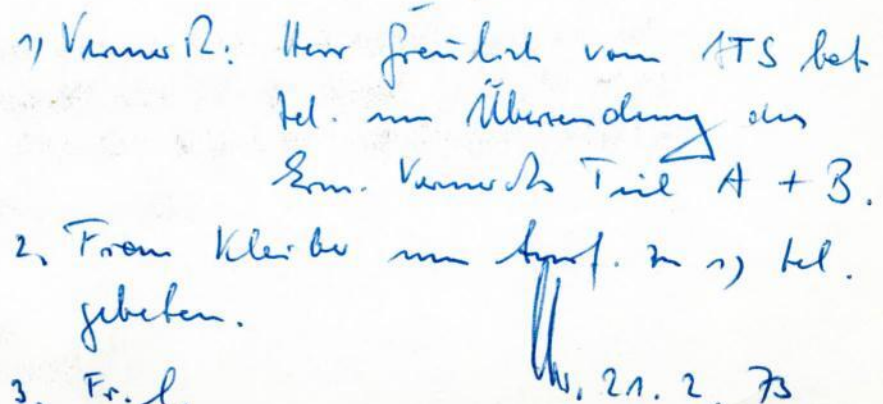 1) Vermerk: Herr Greulich vom ATS bat
tel. um Übersendung des
Erm. Vermerks Teil A + B.
2, Frau Kleiber um tel.
gebeten.
3. Fr. 21. 2. 73